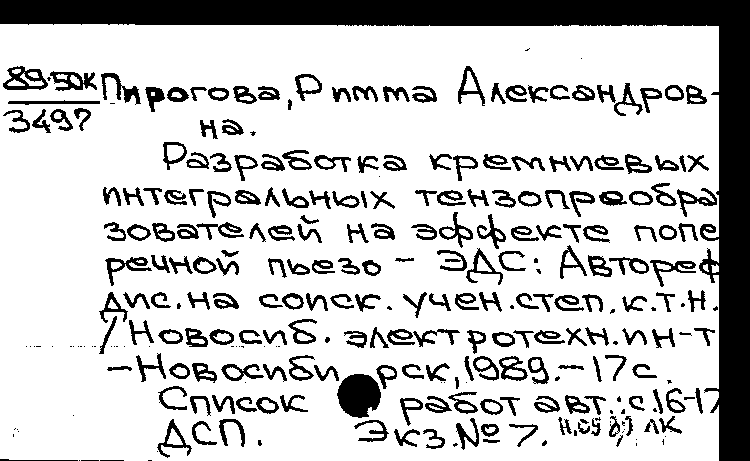 89-50К Пирогова, Римма Александров-
3497 на.
Разработка кремниевых
интегральных тензопреобра
зователей на эффекте попе
речной пьезо - ЭДС: Автореф
дис. на соиск. учен. степ. к.т.н.
/Новосиб. электротехн. ин-т
-Новосибирск, 1989.-17с.
Список работ авт.: с.16-17
ДСП. Экз.№7. ЛК